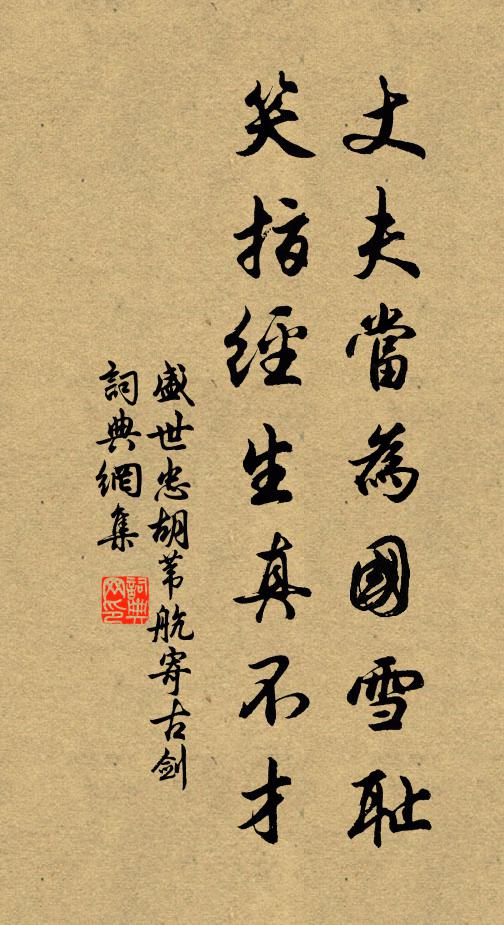 丈夫當為國雪耻
笑指經生真不才
盛世忠胡苇航寄古劍
詞典網集
詞典
网印